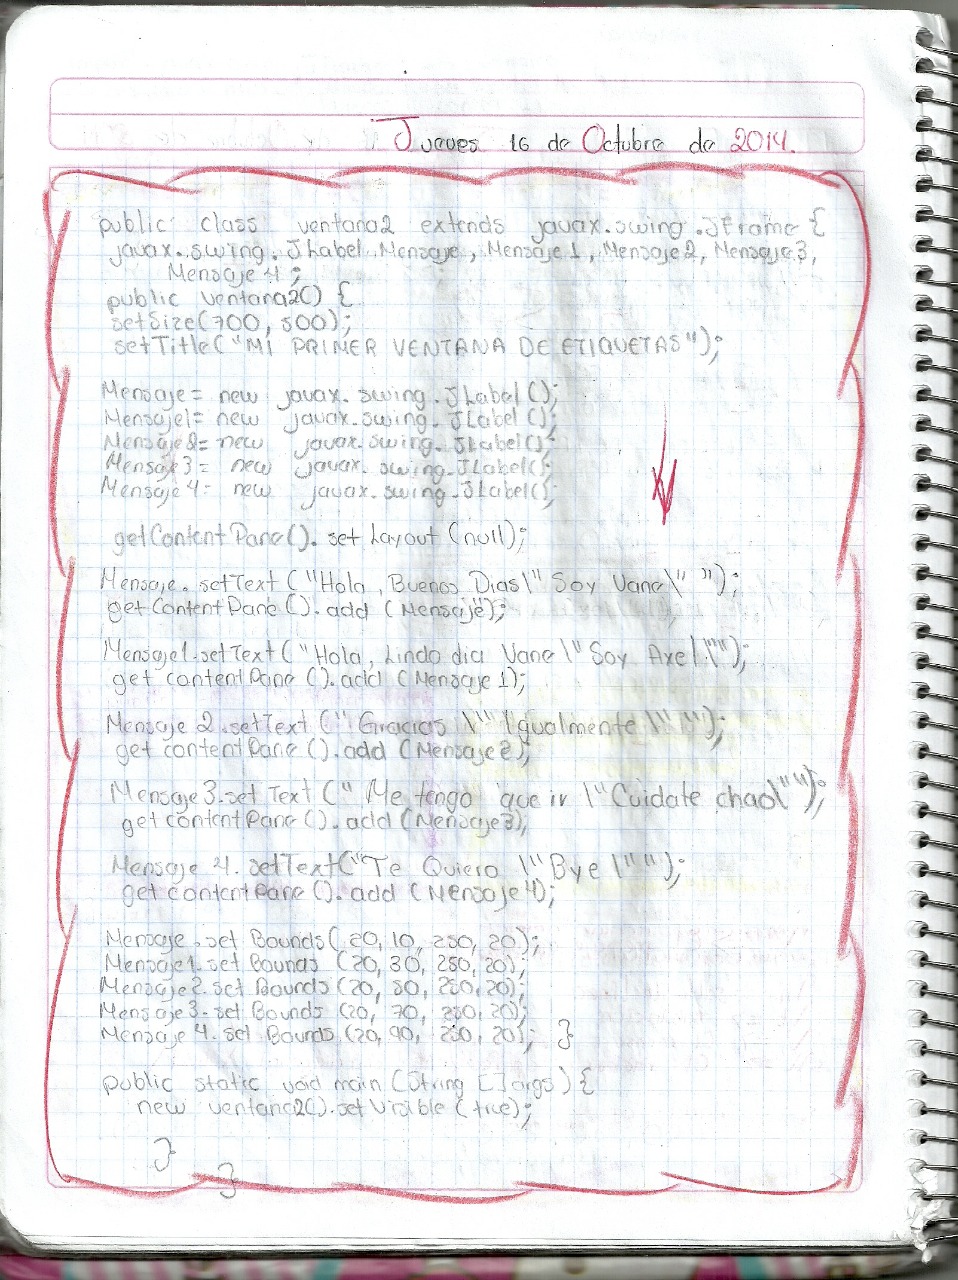 Jueves 16 de Octubre de 2014.
public class ventana2 extends javax.swing.JFrame {
javax.swing.JLabel Mensaje, Mensaje1, Mensaje2, Mensaje3,
Mensaje4;
public ventana2() {
setSize(700, 500);
setTitle("MI PRIMER VENTANA DE ETIQUETAS");
Mensaje= new javax.swing.JLabel();
Mensaje1= new javax.swing.JLabel();
Mensaje2= new javax.swing.JLabel();
Mensaje3= new javax.swing.JLabel();
Mensaje4= new javax.swing.JLabel();
getContentPane().setLayout(null);
Mensaje.setText("Hola, Buenos Dias\" Soy Vane\" ");
getContentPane().add(Mensaje);
Mensaje1.setText("Hola, Lindo dia Vane \" Soy Axel \"");
getcontentPane().add(Mensaje1);
Mensaje2.setText("Gracias \" Igualmente \" ");
getcontentPane().add(Mensaje2);
Mensaje3.setText(" Me tengo que ir \"Cuidate chao\" ");
getcontentPane().add(Mensaje3);
Mensaje4.setText("Te Quiero \" Bye \"");
getcontentPane().add(Mensaje4);
Mensaje.setBounds(20, 10, 250, 20);
Mensaje1.setBounds(20, 30, 250, 20);
Mensaje2.setBounds(20, 50, 250, 20);
Mensaje3.setBounds(20, 70, 250, 20);
Mensaje4.setBounds(20, 90, 250, 20); }
public static void main (String []args) {
new ventana2().setVisible(true);
}
}